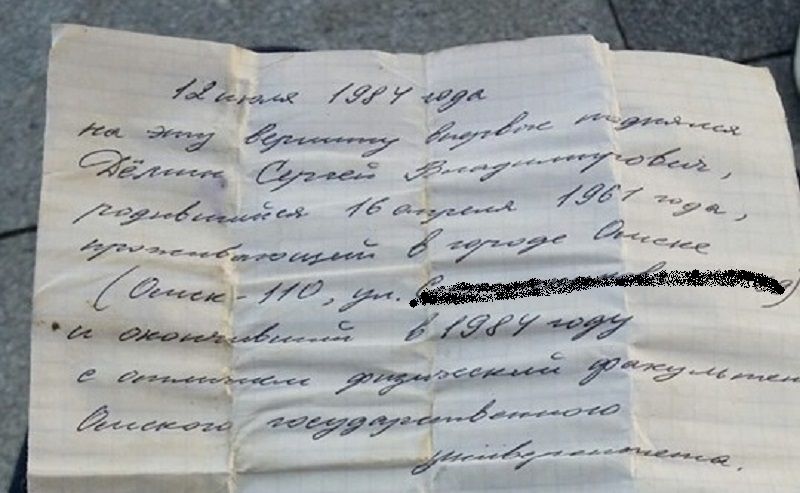 12 июля 1984 года
на эту вершину впервые поднялся
Дёмин Сергей Владимирович,
родившийся 16 апреля 1961 года,
проживающий в городе Омске
(Омск-110, ул.
и окончивший в 1984 году
с отличием физический факультет
Омского государственного
университета.